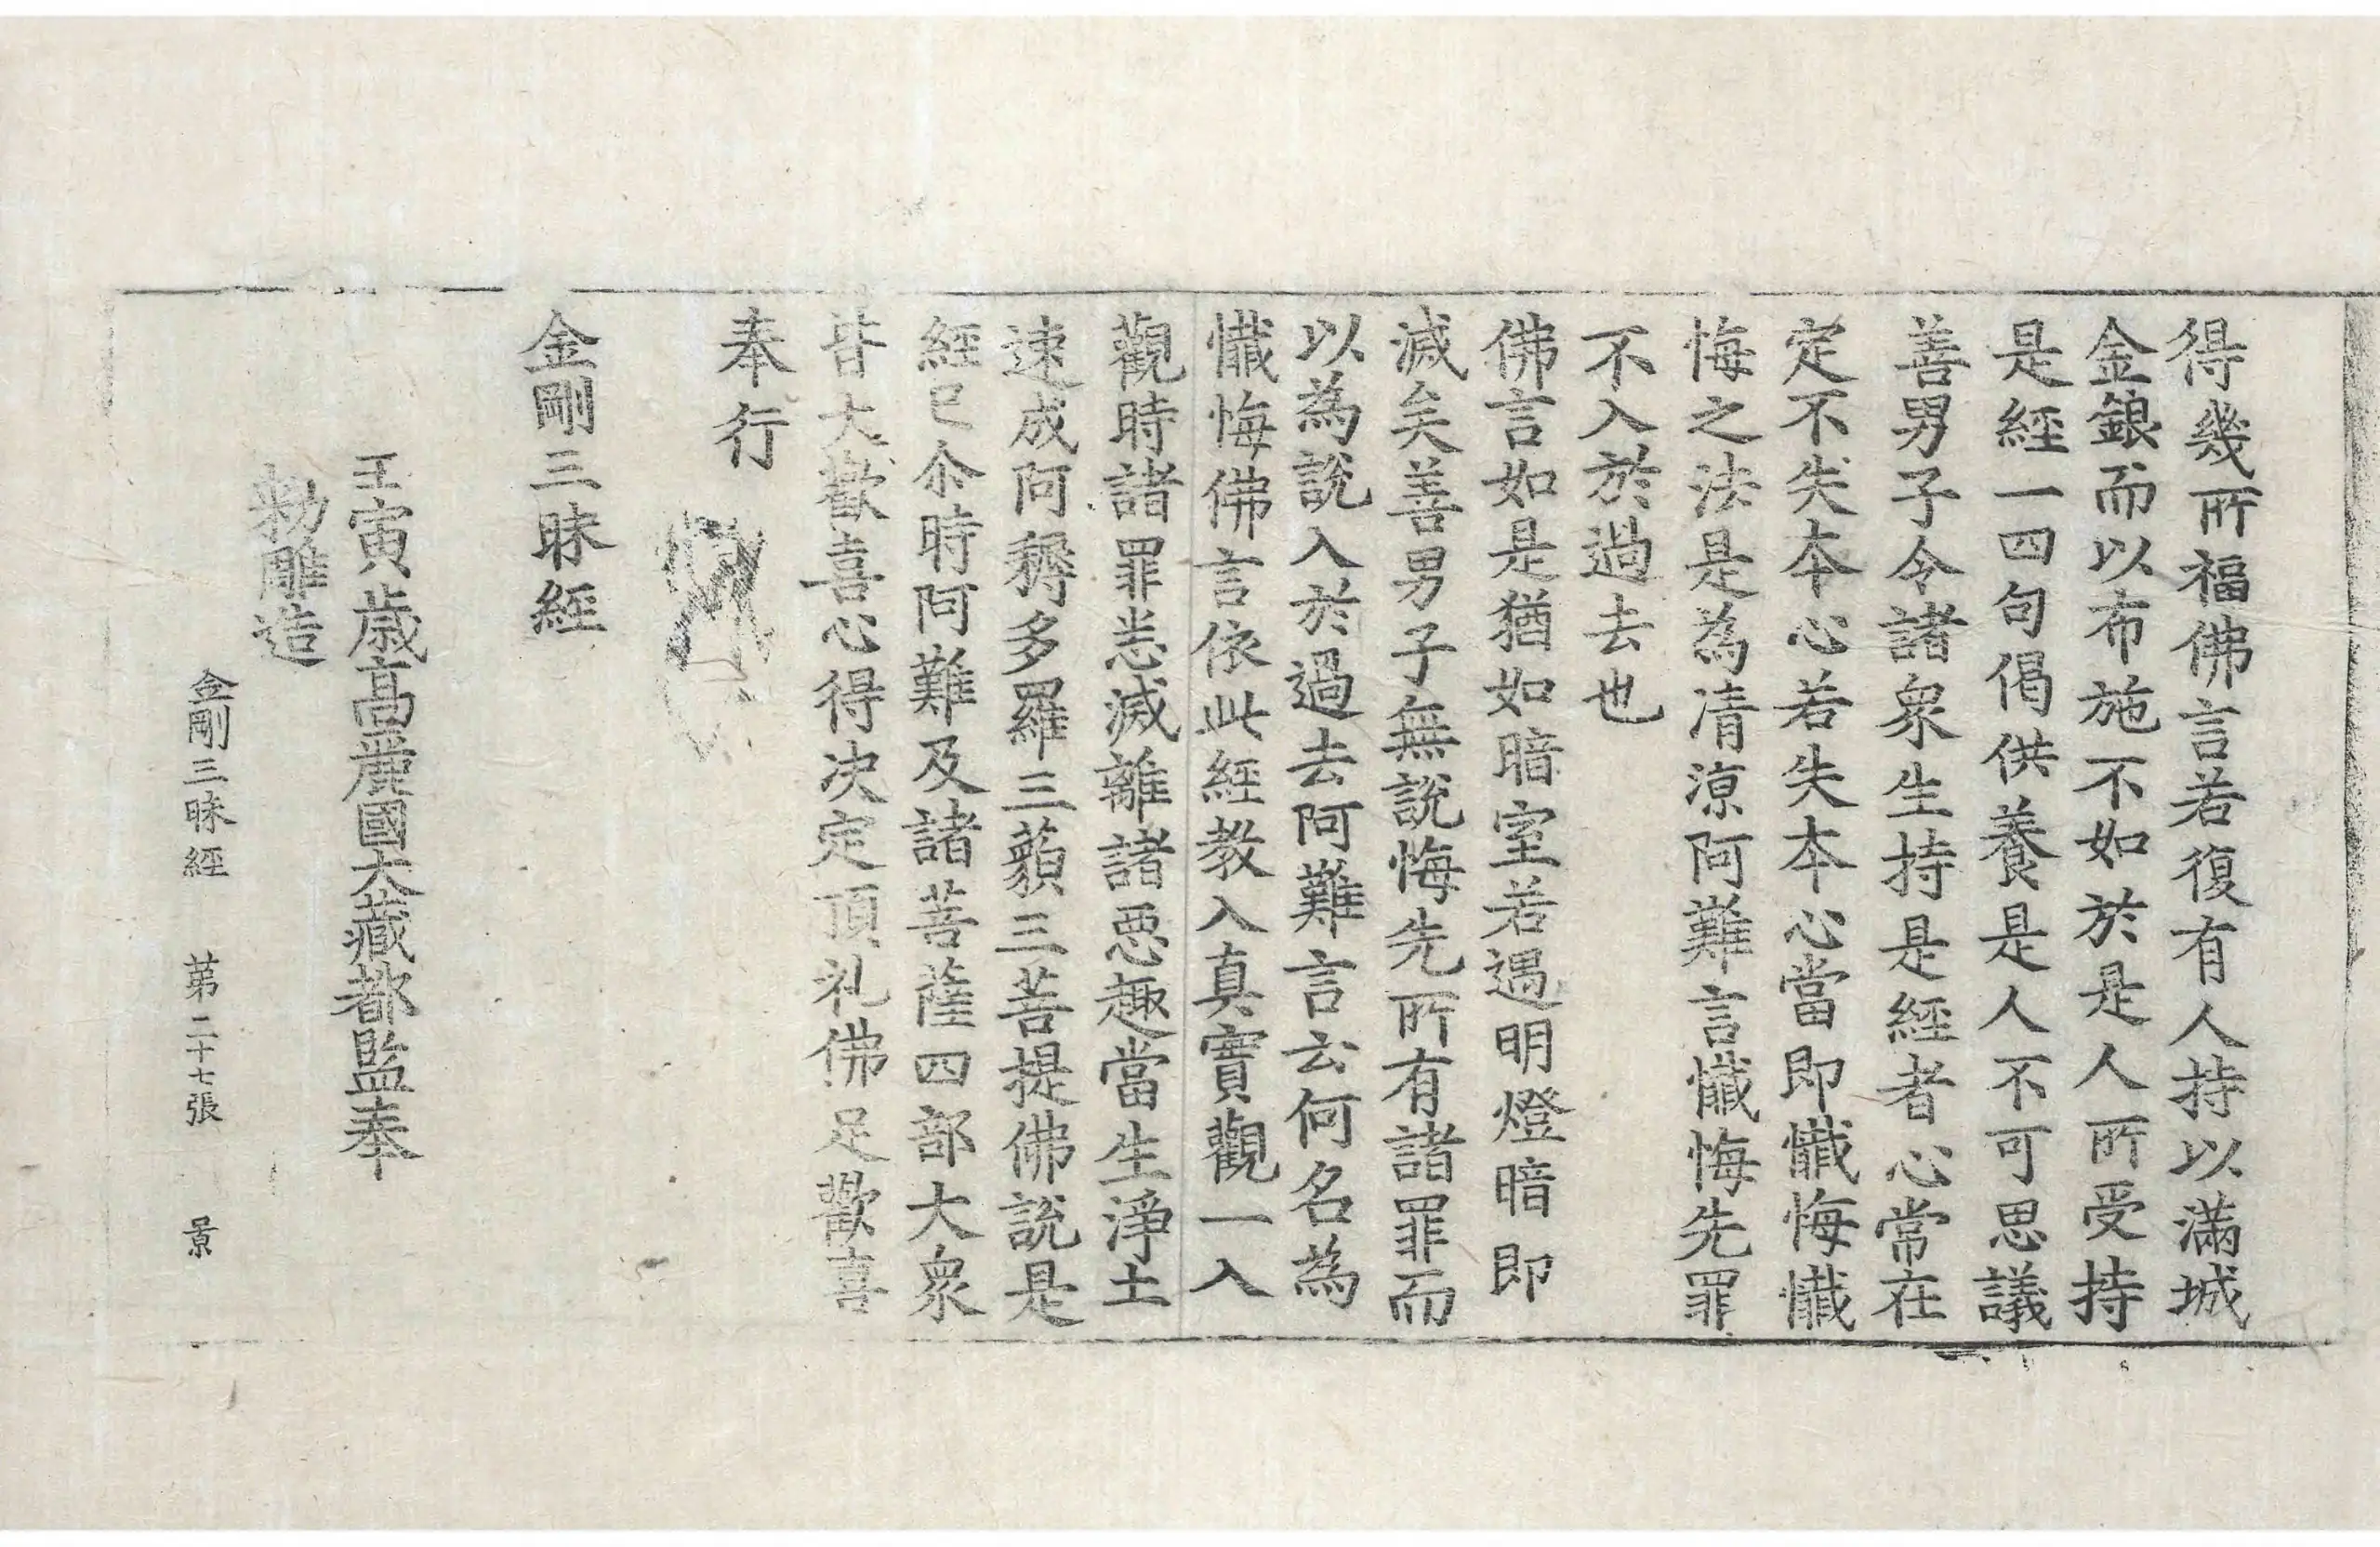 得幾所福佛言若復有人持以滿城
金銀而以布施不如於是人所受持
是經一四句偈供養是人不可思議
善男子令諸衆生持是經者心常在
定不失本心若失本心當即懺悔懺
悔之法是為清涼阿難言懺悔先罪
不入於過去也
佛言如是猶如暗室若遇明燈暗即
滅矣善男子無說悔先所有諸罪而
以為說入於過去阿難言云何名為
懺悔佛言依此經教入真實觀一入
觀時諸罪悉滅離諸惡趣當生淨土
速成阿耨多羅三藐三菩提佛說是
經已尒時阿難及諸菩薩四部大衆
皆大歡喜心得決定頂礼佛足歡喜
奉行
金剛三昧經
壬寅歲高麗國大藏都監奉
勅雕造
金剛三昧經 第二十七張 景